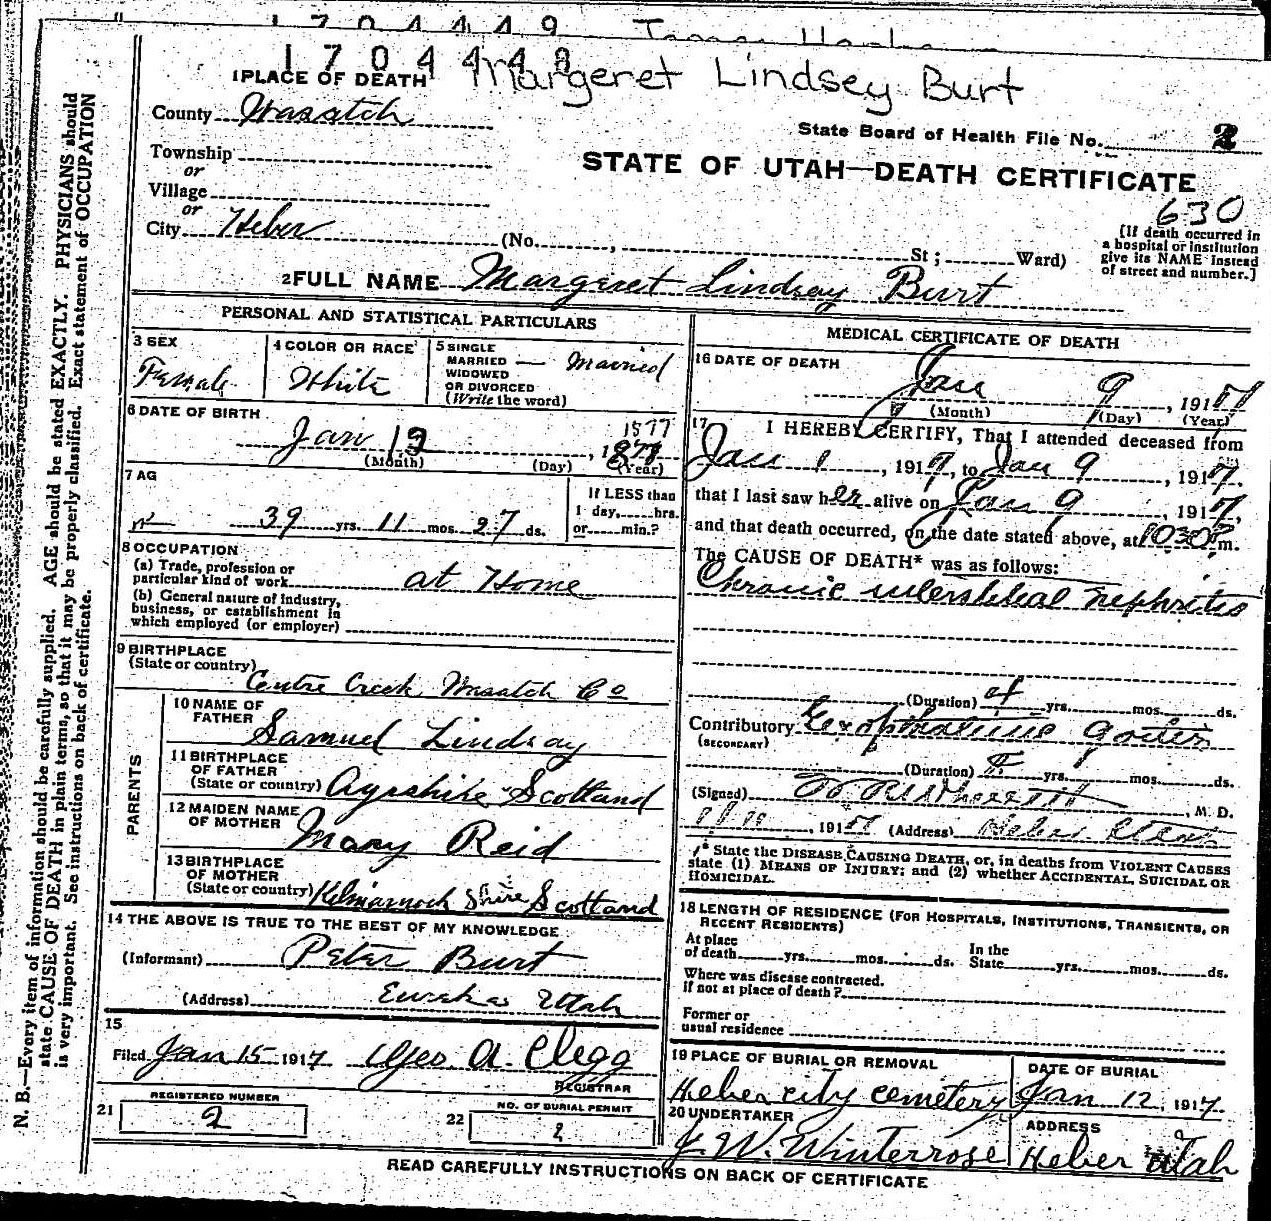 1 7 0 4 4 4 9
1 7 0 4 4 4 8 Margeret Lindsey Burt
1 PLACE OF DEATH
County Wasatch
State Board of Health File No. 2
Township
or
STATE OF UTAH—DEATH CERTIFICATE
Village
or
630
City Heber (No. , St ; Ward)
[If death occurred in
a hospital or institution
give its NAME instead
of street and number.]
2 FULL NAME Margaret Lindsay Burt
PERSONAL AND STATISTICAL PARTICULARS
3 SEX
Female
4 COLOR OR RACE
White
5 SINGLE
MARRIED — Married
WIDOWED
OR DIVORCED
(Write the word)
6 DATE OF BIRTH
1877
Jan 12
(Month) (Day) (Year)
7 AG
39 yrs. 11 mos. 27 ds.
If LESS than
1 day, hrs.
or min.?
8 OCCUPATION
(a) Trade, profession or
particular kind of work at Home
(b) General nature of Industry,
business, or establishment in
which employed (or employer)
9 BIRTHPLACE
(State or country)
Centre Creek Wasatch Co
PARENTS
10 NAME OF
FATHER
Samuel Lindsay
11 BIRTHPLACE
OF FATHER
(State or country) Ayrshire Scotland
12 MAIDEN NAME
OF MOTHER
Mary Reid
13 BIRTHPLACE
OF MOTHER
(State or country) Kilmarnock Shire Scotland
14 THE ABOVE IS TRUE TO THE BEST OF MY KNOWLEDGE
(Informant) Peter Burt
(Address) Eureka Utah
15
Filed Jan 15 1917 Geo A. Clegg
REGISTRAR
REGISTERED NUMBER
21 2
NO. OF BURIAL PERMIT
22 2
MEDICAL CERTIFICATE OF DEATH
16 DATE OF DEATH
Jan 9, 1917
(Month) (Day) (Year)
17 I HEREBY CERTIFY, That I attended deceased from
Jan 1, 1917, to Jan 9, 1917.
that I last saw her alive on Jan 9, 1917,
and that death occurred, on the date stated above, at 1030P m.
The CAUSE OF DEATH* was as follows:
Chronic interstitial nephritis
(Duration) yrs. mos. ds.
Contributory Exophthalmic goiter
(SECONDARY)
(Duration) yrs. mos. ds.
(Signed) , M. D.
, 1917 (Address) Heber Utah
* State the DISEASE CAUSING DEATH, or, in deaths from VIOLENT CAUSES
state (1) MEANS OF INJURY; and (2) whether ACCIDENTAL, SUICIDAL OR
HOMICIDAL.
18 LENGTH OF RESIDENCE (FOR HOSPITALS, INSTITUTIONS, TRANSIENTS, OR
RECENT RESIDENTS)
At place
of death yrs. mos. ds.
In the
State yrs. mos. ds.
Where was disease contracted.
if not at place of death ?
Former or
usual residence
19 PLACE OF BURIAL OR REMOVAL
Heber city cemetery
DATE OF BURIAL
Jan 12, 1917
20 UNDERTAKER
J. W. Winterrose
ADDRESS
Heber Utah
READ CAREFULLY INSTRUCTIONS ON BACK OF CERTIFICATE
N. B.—Every item of information should be carefully supplied. AGE should be stated EXACTLY. PHYSICIANS should
state CAUSE OF DEATH in plain terms, so that it may be properly classified. Exact statement of OCCUPATION
is very important. See instructions on back of certificate.